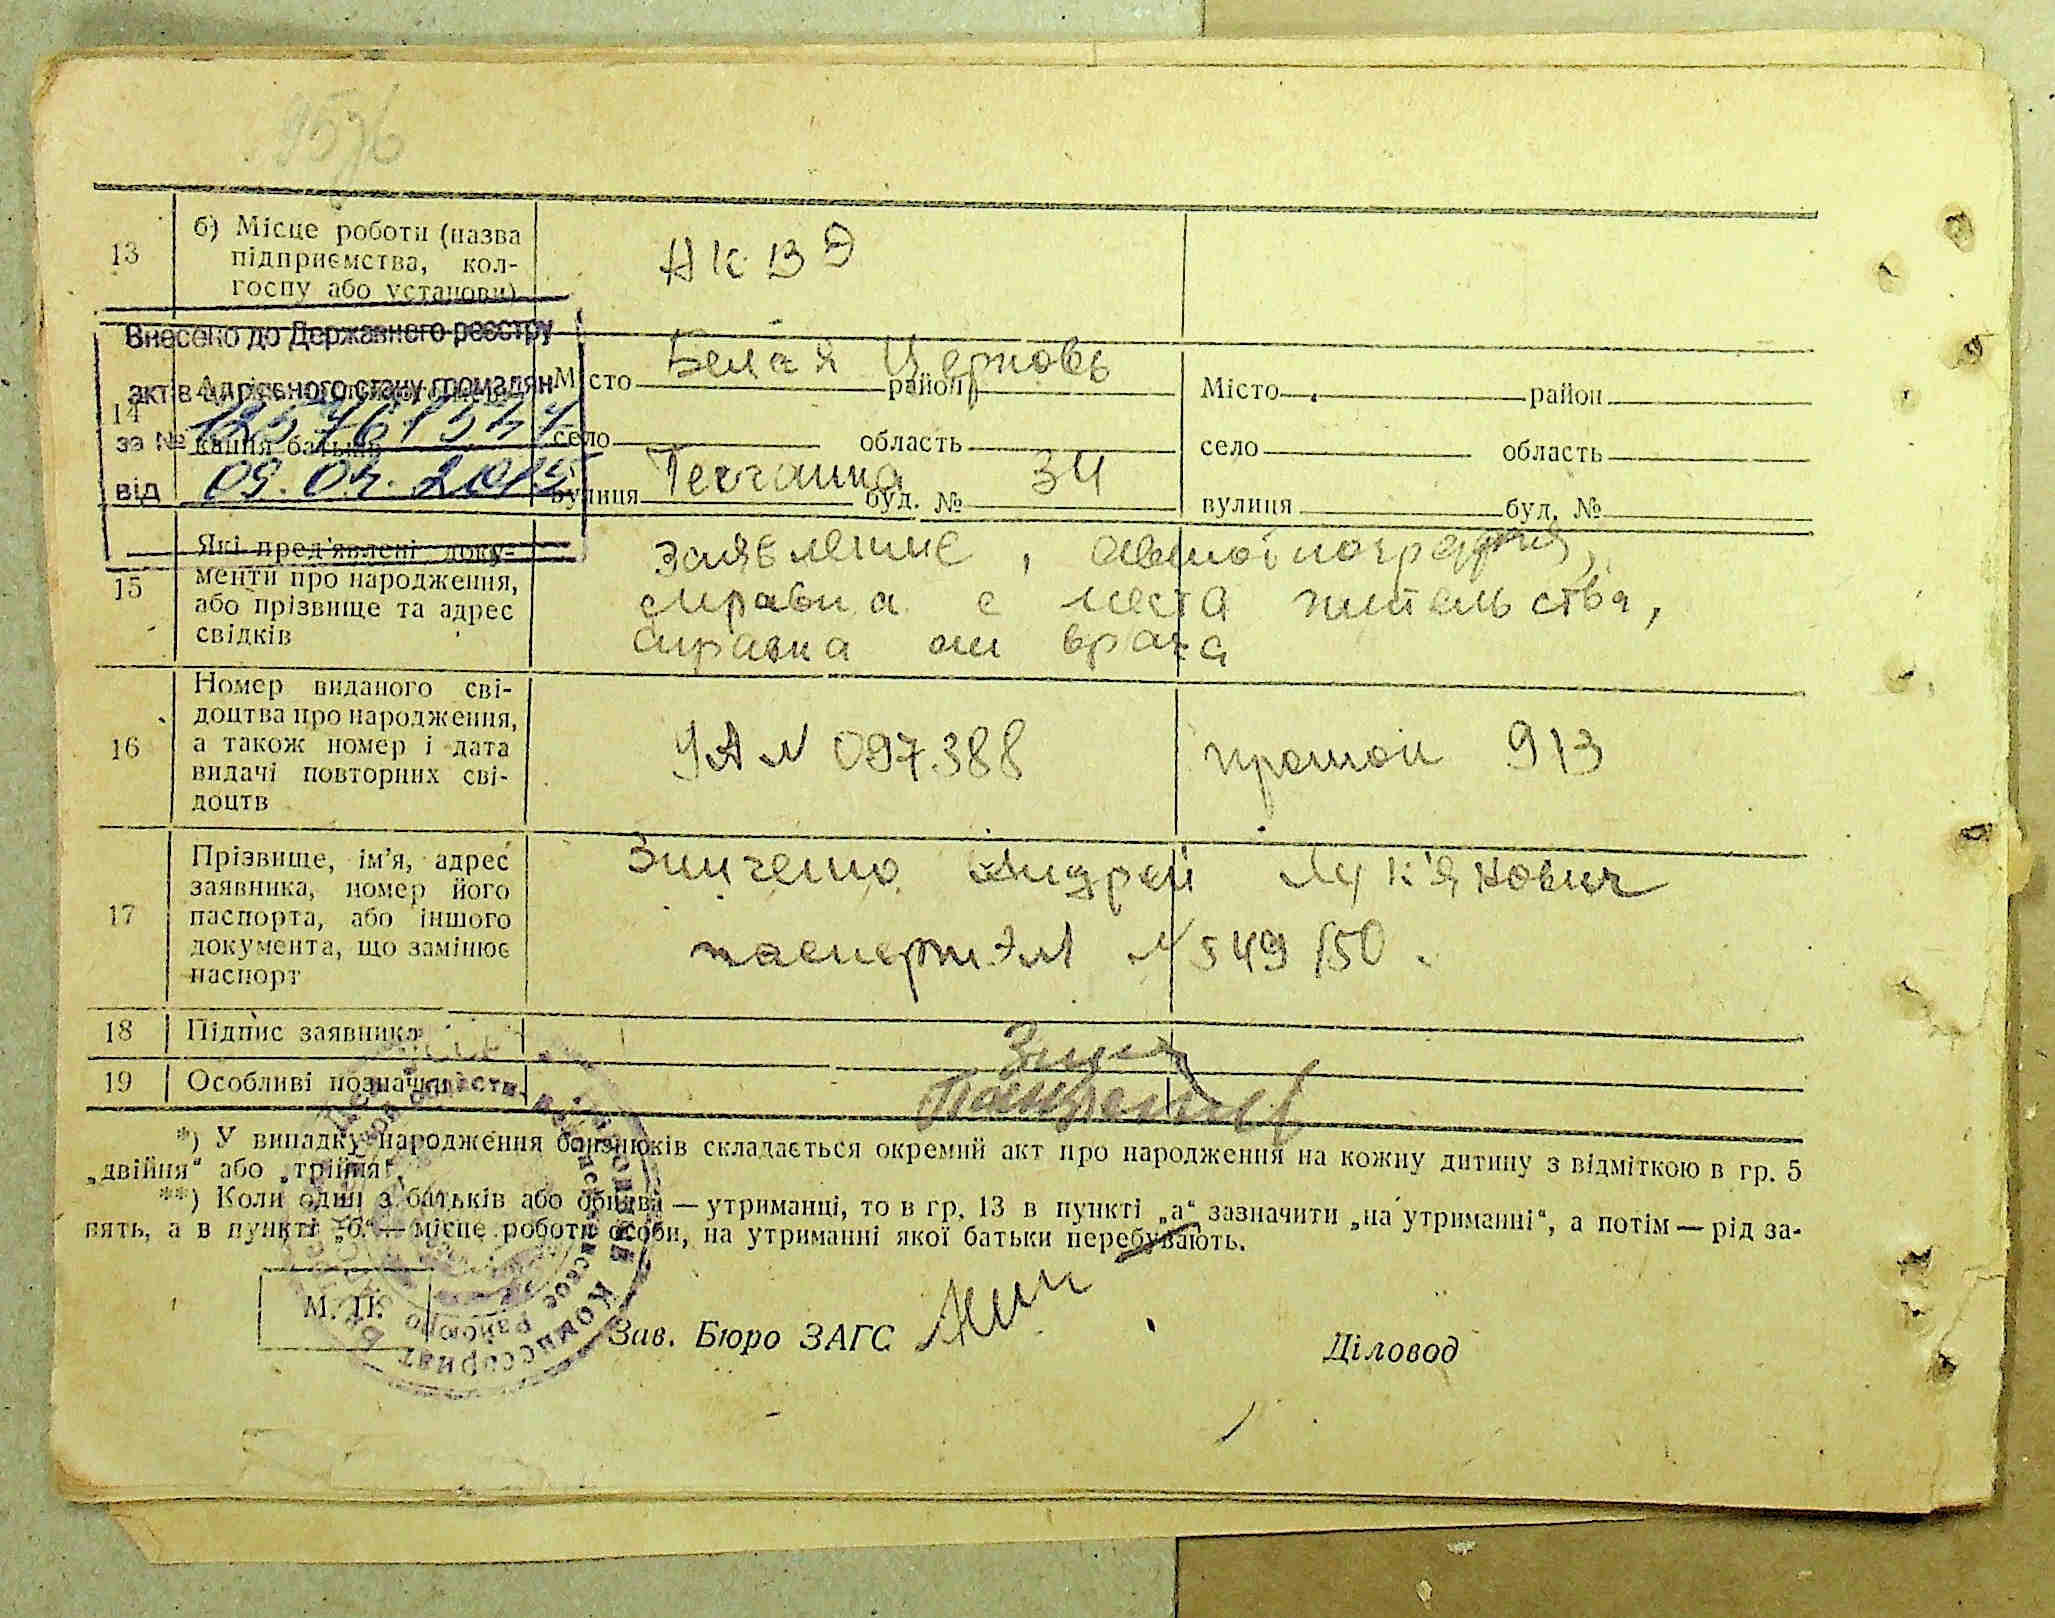 13
б) Місце роботи (назва
підприємства, кол-
госпу або установи)
Н К В Д
Внесено до Державного реєстру
актів цивільного стану громадян
за №
від 09.04.2015
14
кання батьків
Белая Церковь
Місто район
село область
вулиця буд. № 34
Місто район
село область
вулиця буд. №
15
Які пред'явлені доку-
менти про народження,
або прізвище та адрес
свідків
заявление,
справка с места жительства,
справка от врача
16
Номер виданого сві-
доцтва про народження,
а також номер і дата
видачі повторних сві-
доцтв
УА N 097388
913
17
Прізвище, ім'я, адрес
заявника, номер його
паспорта, або іншого
документа, що замінює
паспорт
Зинченко Андрей Лук'янович
паспорт N 549150.
18
Підпис заявника
19
Особливі позначки
*) У випадку народження близнюків складається окремий акт про народження на кожну дитину з відміткою в гр. 5
„двійня“ або „трійня“.
**) Коли один з батьків або обидва — утриманці, то в гр. 13 в пункті „а“ зазначити „на утриманні“, а потім — рід за-
нять, а в пункті „б“ — місце роботи особи, на утриманні якої батьки перебувають.
М. П.
Зав. Бюро ЗАГС
Діловод